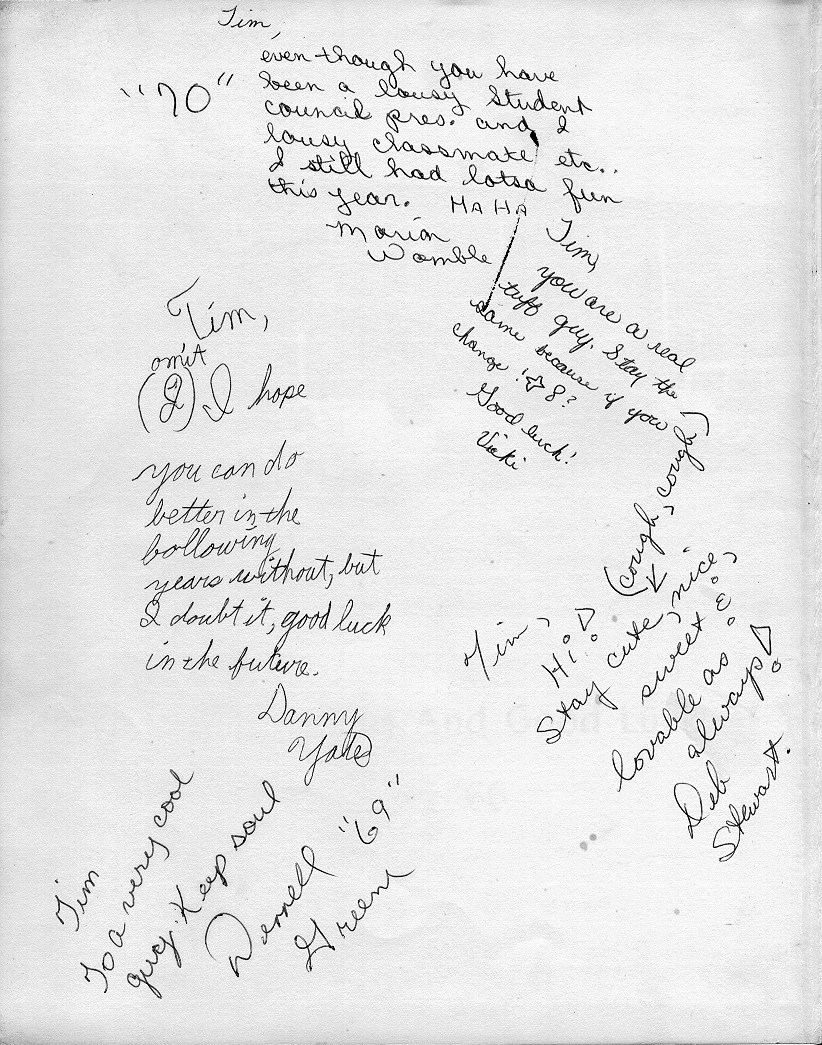 Tim,
even though you have
been a lousy Student
council pres. and a
lousy classmate etc..
I still had lotsa fun
this year. HA HA
Marian
Womble
"70"
Tim,
you are a real
tuff guy. Stay the
same because if you
change!☆8?
Good luck!
Vicki
Tim,
omit
(I) I hope
you can do
better in the
bollowing
years without, but
I doubt it, good luck
in the future.
Danny
Yates
Tim,
Hi!
(cough, cough)
Stay cute, nice,
sweet &
lovable as
always!
Deb
Stewart.
Tim
To a very cool
guy. Keep soul
Derrell "69"
Greene
And Good